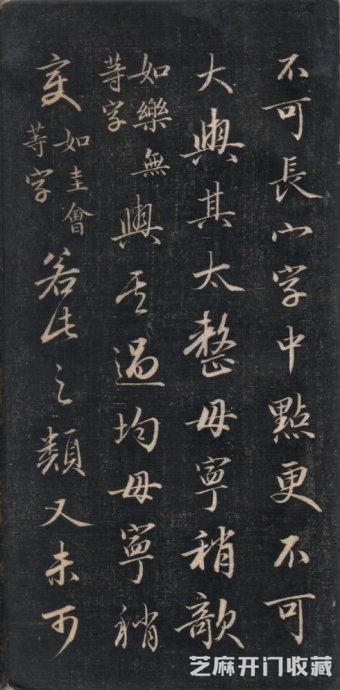 不可長宀字中點更不可
大與其太整毋寧稍欹
如樂無
等字
與其過均毋寧稍
变
如圭會
等字
若此之類又未可
芝麻开门收藏